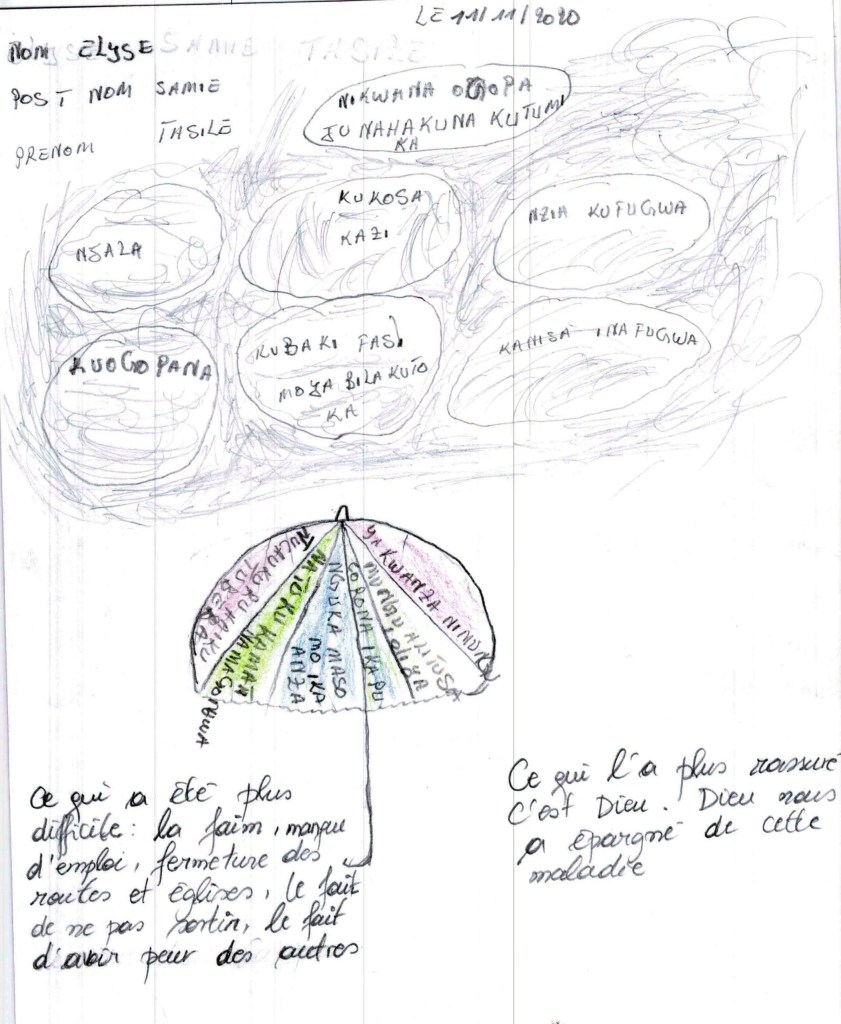 LE 11/11/2020
NOM ELYSE
POST NOM SAMIE
PRENOM TASILE
NIKWANA OGOPA
JUNAHAKUNA KUTUMI
KA
NJALA
KUKOSA
KAZI
NZIA KUFUGWA
KUOGOPANA
KUBAKI FASI
MOJA BILA KUTO
KA
KANISA INAFUGWA
YA KWANZA NI
MUNGU ALITUSA
IDIYA
CORONA IKAPU
NGUKA MASO
MO IKA
ANZA
NATULIKUKAMAT
Ce qui a été plus
difficile : la faim, manque
d'emploi, fermeture des
routes et églises, le fait
de ne pas sortir, le fait
d'avoir peur des autres
Ce qui l'a plus rassuré
c'est Dieu. Dieu nous
a épargné de cette
maladie